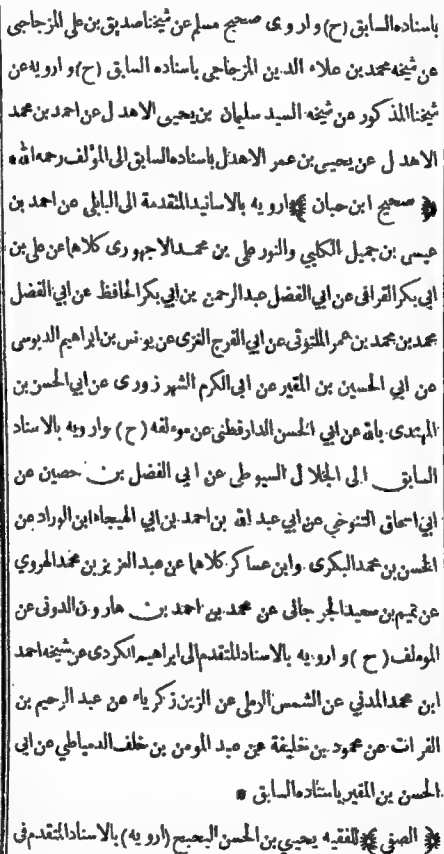 باسناده السابق (ح) و اروى صحيح مسلم عن شيخنا صديق بن على المزجاجى
عن شيخه محمد بن علاء الدين المزجاجى باسناده السابق (ح) و ارويه عن
شيخنا المذكور عن شيخه السيد سليمان بن يحيى الاهدل عن احمد بن محمد
الاهدل عن يحيى بن عمر الاهدل باسناده السابق الى المؤلف رحمه الله *
﴿ صحيح ابن حبان ﴾ ارويه بالاسانيد المتقدمة الى البابلى عن احمد بن
عيسى بن جميل الكلبي والنور على بن محمد الاجهورى كلاهما عن على بن
ابى بكر القرافى عن ابى الفضل عبد الرحمن بن ابى بكر الحافظ عن ابى الفضل
محمد بن محمد بن عمر الملتوتى عن ابى الفرج الغزى عن يونس بن ابراهيم الدبوسى
عن ابى الحسين بن المقير عن ابى الكرم الشهرزورى عن ابى الحسن بن
المهتدى بالله عن ابى الحسن الدارقطنى عن موءلفه (ح) و ارويه بالاسناد
السابق الى الجلال السيوطى عن ابى الفضل بن حصين عن
ابى اسحاق التنوخى عن ابى عبد الله بن احمد بن ابى الهيجاء ابن الوراد عن
الحسن بن محمد البكرى وابن عساكر كلاهما عن عبد العزيز بن محمد الهروي
عن تميم بن سعيد الجرجانى عن محمد بن احمد بن هارون الدونى عن
الموءلف (ح) و ارويه بالاسناد المتقدم الى ابراهيم الكردى عن شيخه احمد
ابن محمد المدنى عن الشمس الرملى عن الزين زكرياء عن عبد الرحيم بن
الفرات عن محمود بن خليفة عن عبد المومن بن خلف الدمياطى عن ابى
الحسن بن المقير باسناده السابق *
﴿ الصفى ﴾ للفقيه يحيى بن الحسن البحيح (ارويه) بالاسناد المتقدم فى